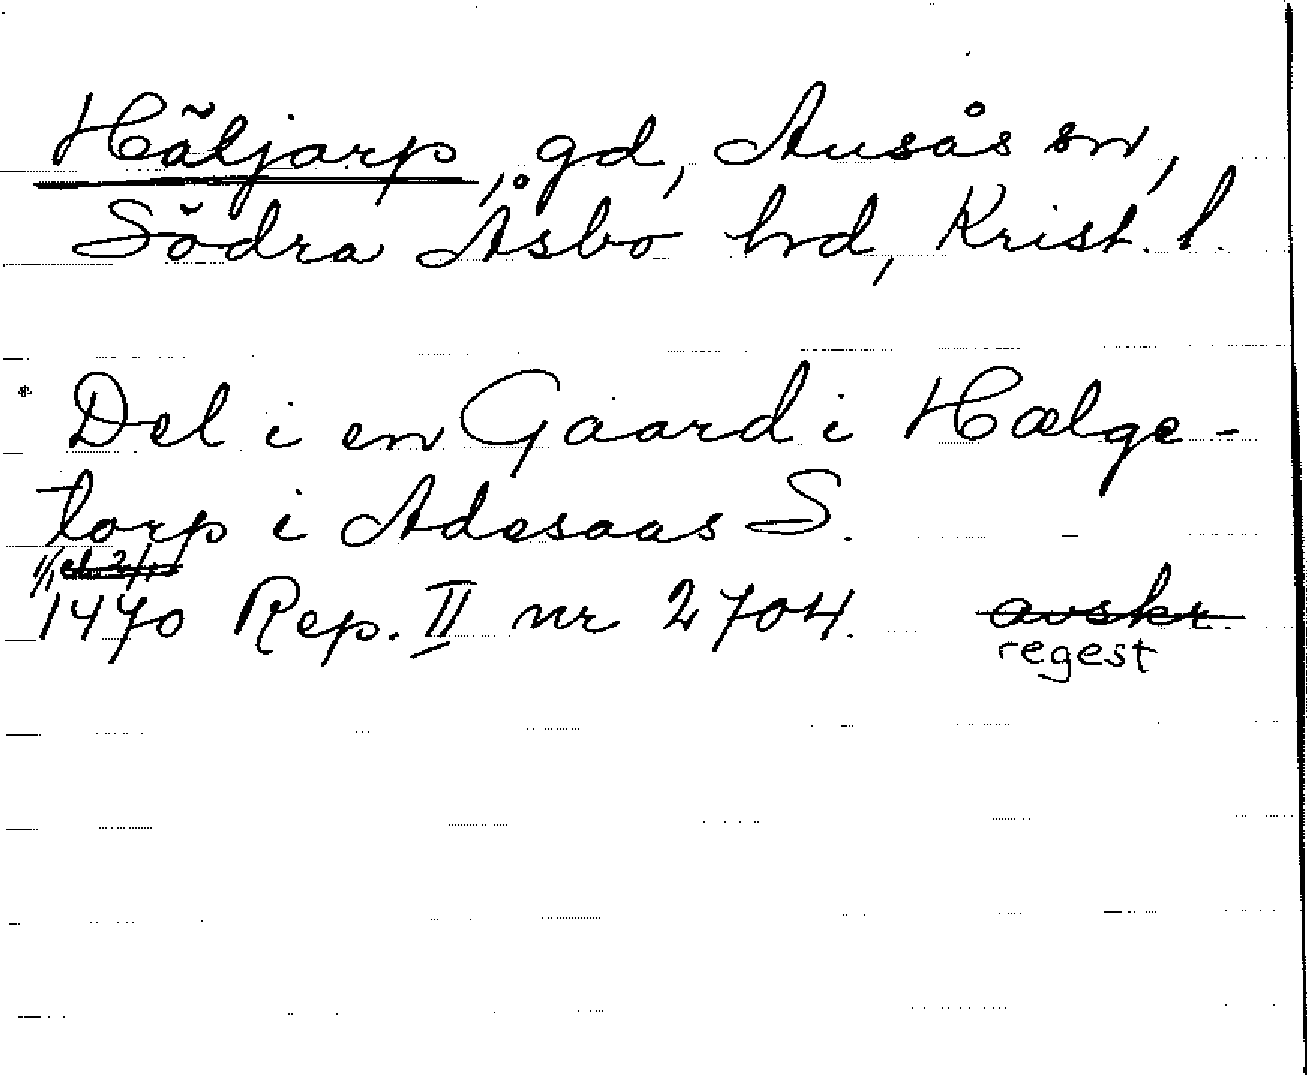 Häljarp, gd, Ausås sn,
Södra Åsbo hrd, Krist. l.
* Del i en Gaard i Hælge-
torp i Adesaas S.
1/1 el. 2/1
1470 Rep. II nr 2704. avskr.
regest